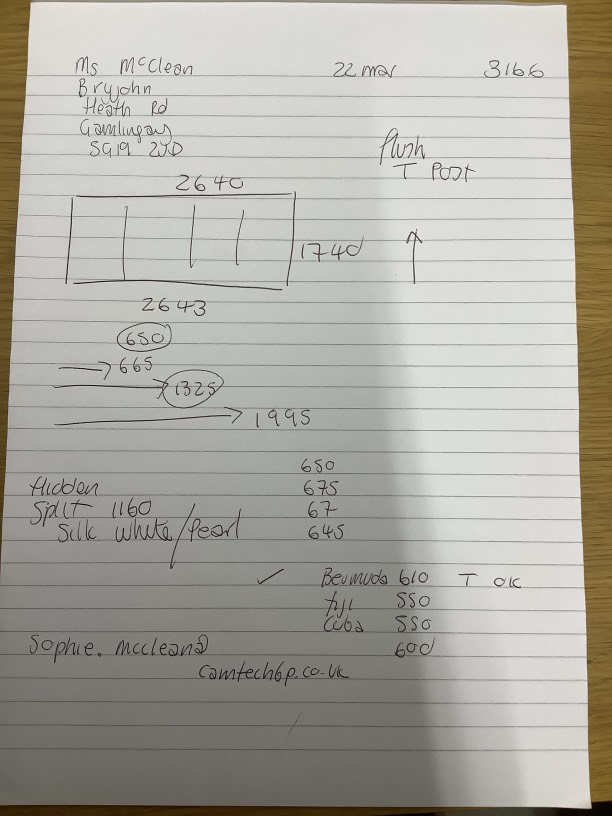 Ms McClean 22 mar 3166
Bryjohn
Heath Rd
Gamlingay
SG19 2JD
Flush
T Post
2640
1740
2643
650
665
1325
1995
650
Hidden 675
Split 1160 67
Silk white/Pearl 645
✓ Bermuda 610 T OK
Fiji 550
Cuba 550
600
Sophie.mcclean@
camtech6p.co.uk